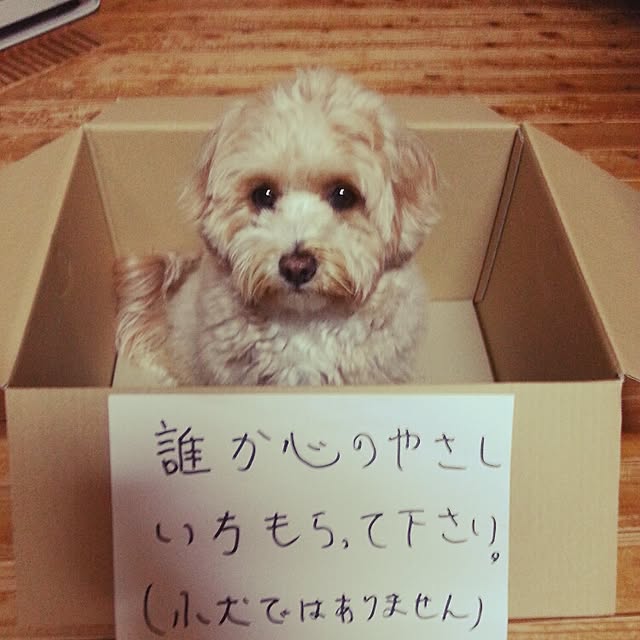 誰か心のやさし
い方もらって下さい。
(小犬ではありません)